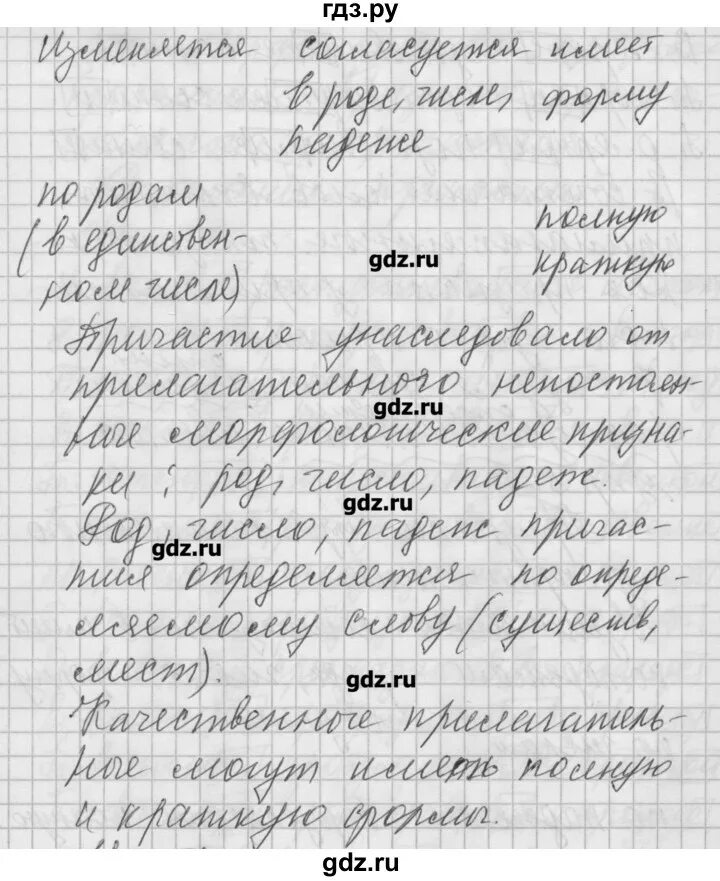 гдз.ру
Изменяется согласуется имеет
в роде, числе, форму
падеже
по родам
(в единствен-
полную
gdz.ru
краткую
ном числе)
Причастие унаследовало от
прилагательного непостоян-
gdz.ru
ные морфологические призна-
ки: род, число, падеж.
gdz.ru
Род, число, падеж причас-
gdz.ru
тия определяется по опреде-
ляемому слову (существ,
мест).
gdz.ru
Качественные прилагатель-
ные могут иметь полную
и краткую формы.
gdz.ru